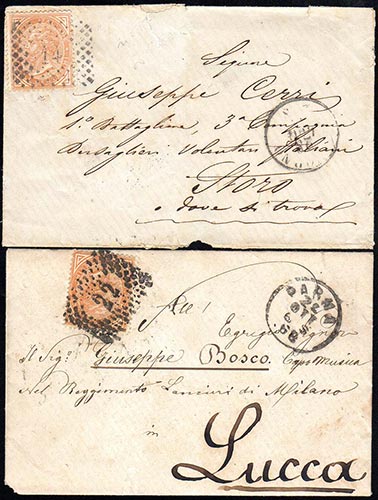 14
Signore
Giuseppe Cerri
1º Battaglione, 3ª Compagnia
Bersaglieri Volontari Italiani
Storo
o dove si trova
22
PARMA
22
All'
Egregio Signore
Il Sigr Giuseppe Bosco Capo Musica
nel Reggimento Lancieri di Milano
in
Lucca